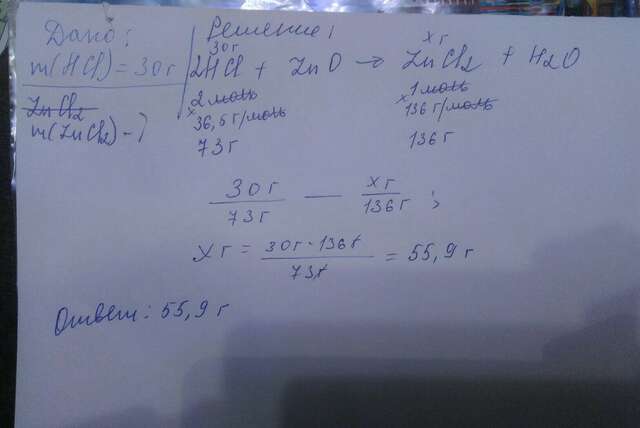 Дано:
m(HCl) = 30 г
ZnCl₂
m(ZnCl₂) - ?
Решение:
30 г x г
2HCl + ZnO → ZnCl₂ + H₂O
2 моль 1 моль
x 36,5 г/моль x 136 г/моль
73 г 136 г
30 г / 73 г — x г / 136 г ;
x г = 30 г · 136 г / 73 г = 55,9 г
Ответ: 55,9 г